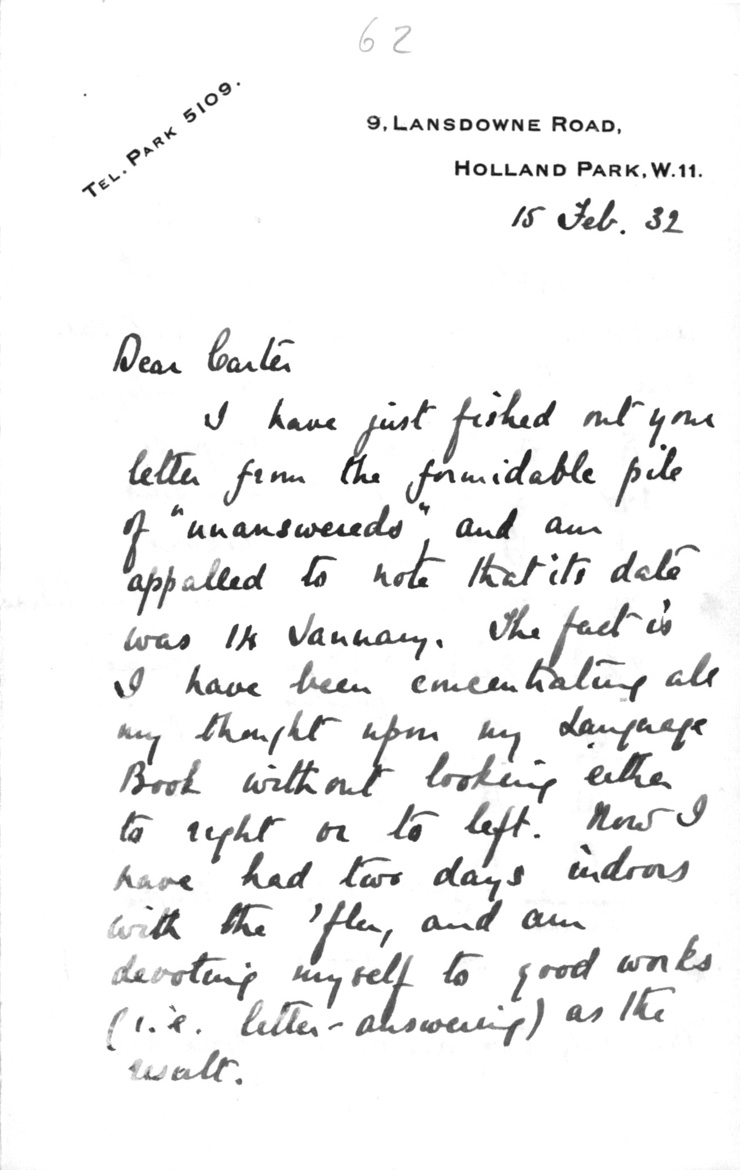 62
TEL. PARK 5109.
9, LANSDOWNE ROAD,
HOLLAND PARK, W.11.
15 Feb. 32
Dear Carter
I have just fished out your
letter from the formidable pile
of "unanswereds", and am
appalled to note that its date
was 14 January. The fact is
I have been concentrating all
my thought upon my Language
Book without looking either
to right or to left. Now I
have had two days indoors
with the 'flu, and am
devoting myself to good works
(i.e. letter-answering) as the
result.